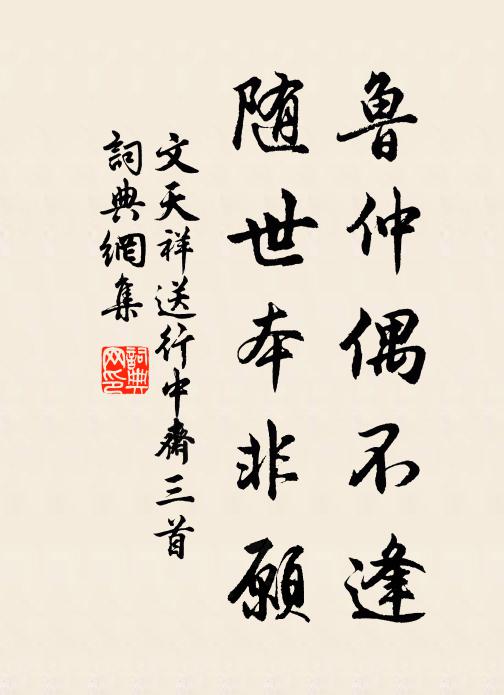 魯仲偶不逢
随世本非願
文天祥送行中齋三首
詞典網集
詞典
网印